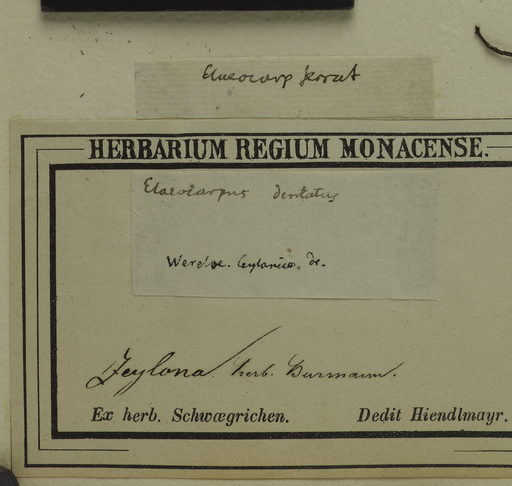 Elaeocarp serrat
HERBARIUM REGIUM MONACENSE.
Elaeocarpus dentatus
Zeylona. herb. Burmann.
Ex herb. Schwægrichen. Dedit Hiendlmayr.